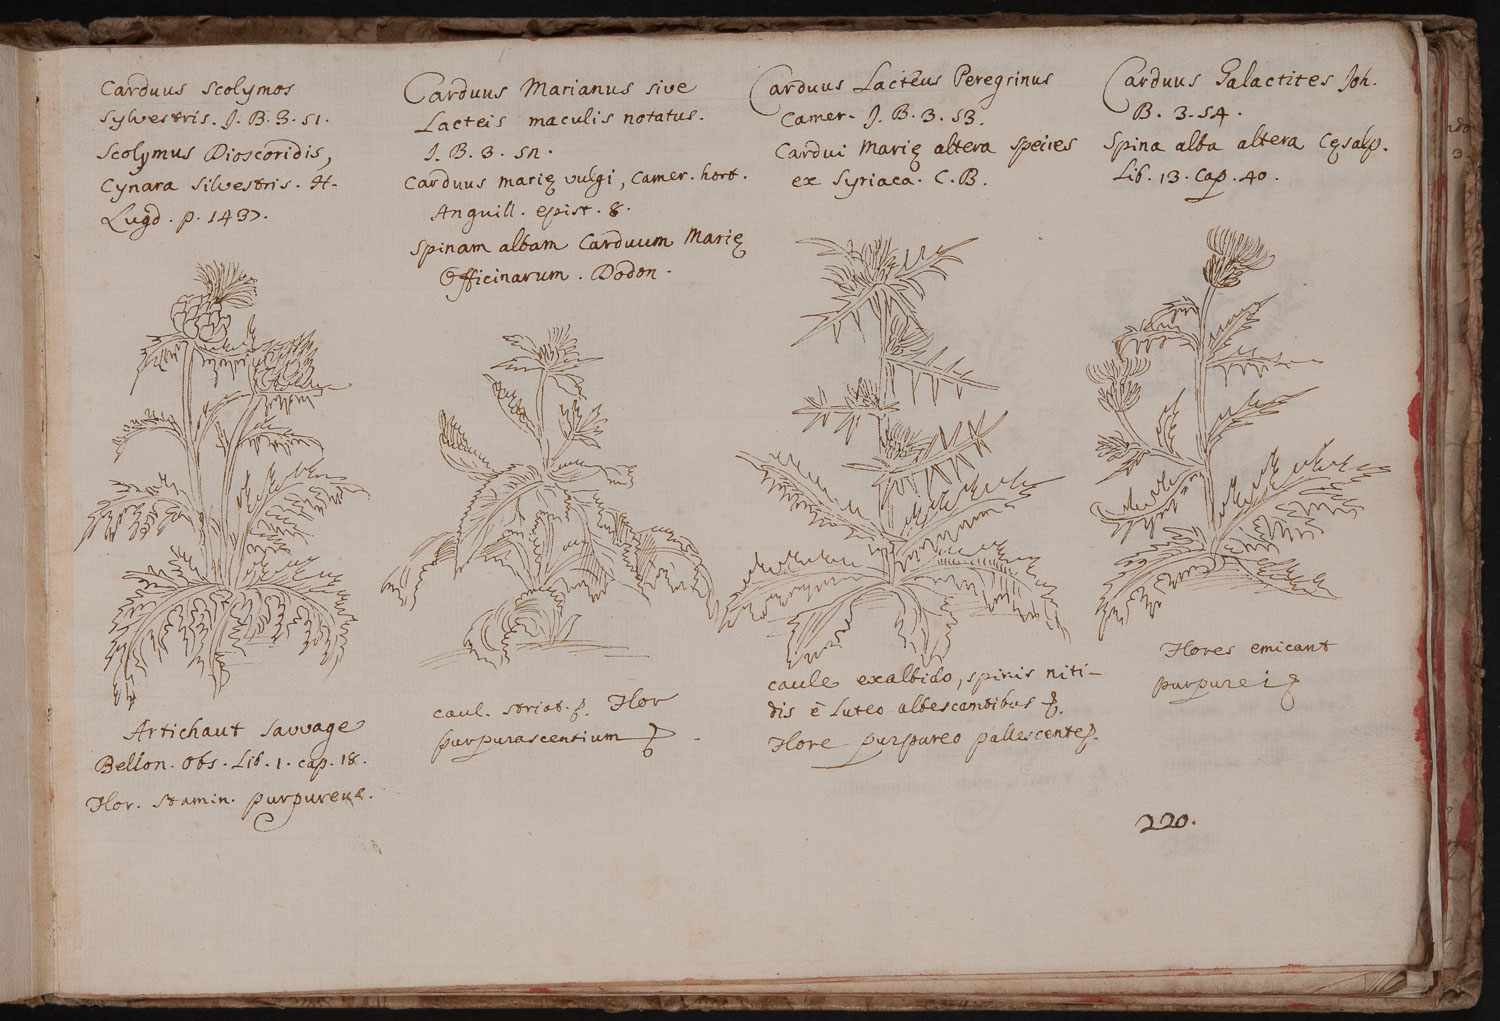 Carduus Scolymos
Sylvestris. J. B. 3. 51.
Scolymus Dioscoridis,
Cynara Silvestris. H.
Lugd. p. 1437.
Artichaut sauvage
Bellon. Obs. Lib. 1. cap. 18.
Flor. stamin. purpureus.
Carduus Marianus sive
Lacteis maculis notatus.
J. B. 3. 52.
Carduus marię vulgi, Camer. hort.
Anguill. epist. 8.
Spinam albam Carduum Marię
Officinarum. Dodon.
caul. striat.
Flor
purpurascentium
Carduus Lacteus Peregrinus
Camer. J. B. 3. 53.
Cardui Marię altera species
ex Syriaca. C. B.
caule exalbido, spinis niti-
dis è luteo albescentibus
Flore purpureo pallescente
Carduus Galactites Joh.
B. 3. 54.
Spina alba altera Cęsalp.
Lib. 13. Cap. 40.
Flores emicant
purpurei
220.